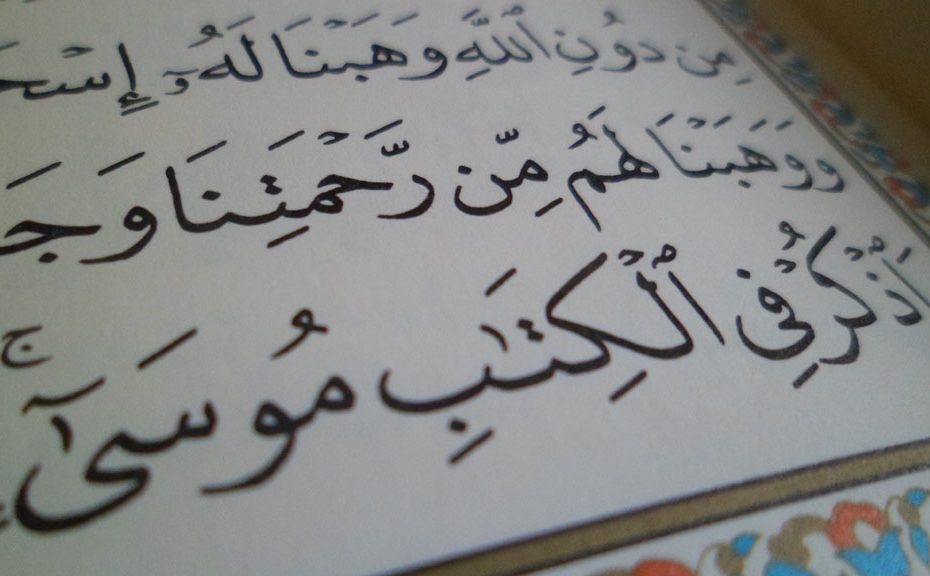 مِن دُونِ ٱللَّهِ وَهَبْنَا لَهُۥٓ إِسْحَ
وَوَهَبْنَا لَهُم مِّن رَّحْمَتِنَا وَجَ
ٱذْكُرْ فِى ٱلْكِتَٰبِ مُوسَىٰٓ ۚ